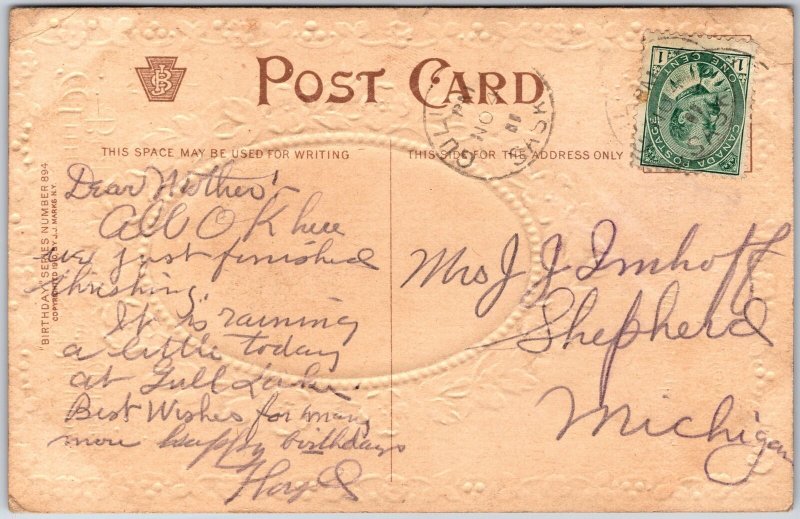 POST CARD
THIS SPACE MAY BE USED FOR WRITING
THIS SIDE FOR THE ADDRESS ONLY
"BIRTHDAY" SERIES NUMBER 894
COPYRIGHTED 1910 BY J.J. MARKS N.Y.
Dear Mother!
All O K here
we just finished
thrishing
It is raining
a little today
at Gull Lake.
Best Wishes for many
more happy birthdays
Floyd
Mrs J J Imhoff
Shepherd
Michigan
GULL
NO
SASK
CANADA POSTAGE
ONE CENT
1
1